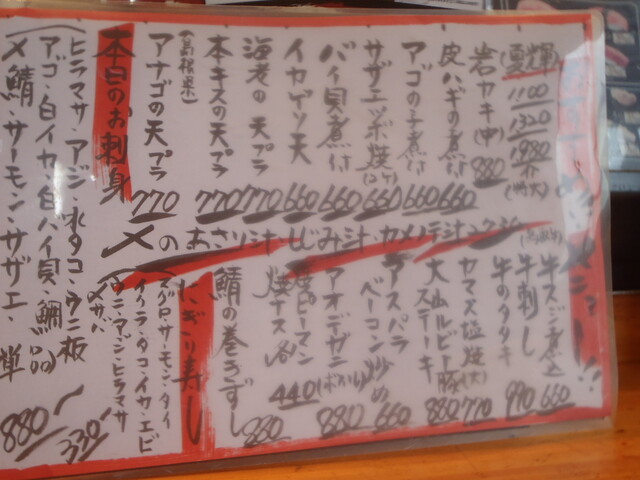 岩カキ(中) 880
1100
1320
1980
皮ハギの煮付 660
アゴの子煮付 660
サザエツボ焼(2ケ) 660
バイ貝煮付 660
イカゲソ天 660
海老の天プラ 770
本キスの天プラ 770
(島根県)
アナゴの天プラ 770
本日のお刺身
ヒラマサ・アジ・水タコ・ウニ板
アゴ・白イカ・白バイ貝・鯛
〆鯖・サーモン・サザエ
880
〆のあさり汁・しじみ汁・カメノテ汁
牛スジ煮込 660
牛刺し
牛のタタキ 990
カマス塩焼(大) 770
大山ルビー豚
ステーキ 880
アスパラ
ベーコン炒め 660
アオデガニ 880
焼ピーマン
焼ナス 各440
鯖の巻きずし 880
にぎり寿し
サーモン・タイ
イクラ・タコ・イカ・エビ
ウニ・アジ・ヒラマサ
〆サバ
330〜